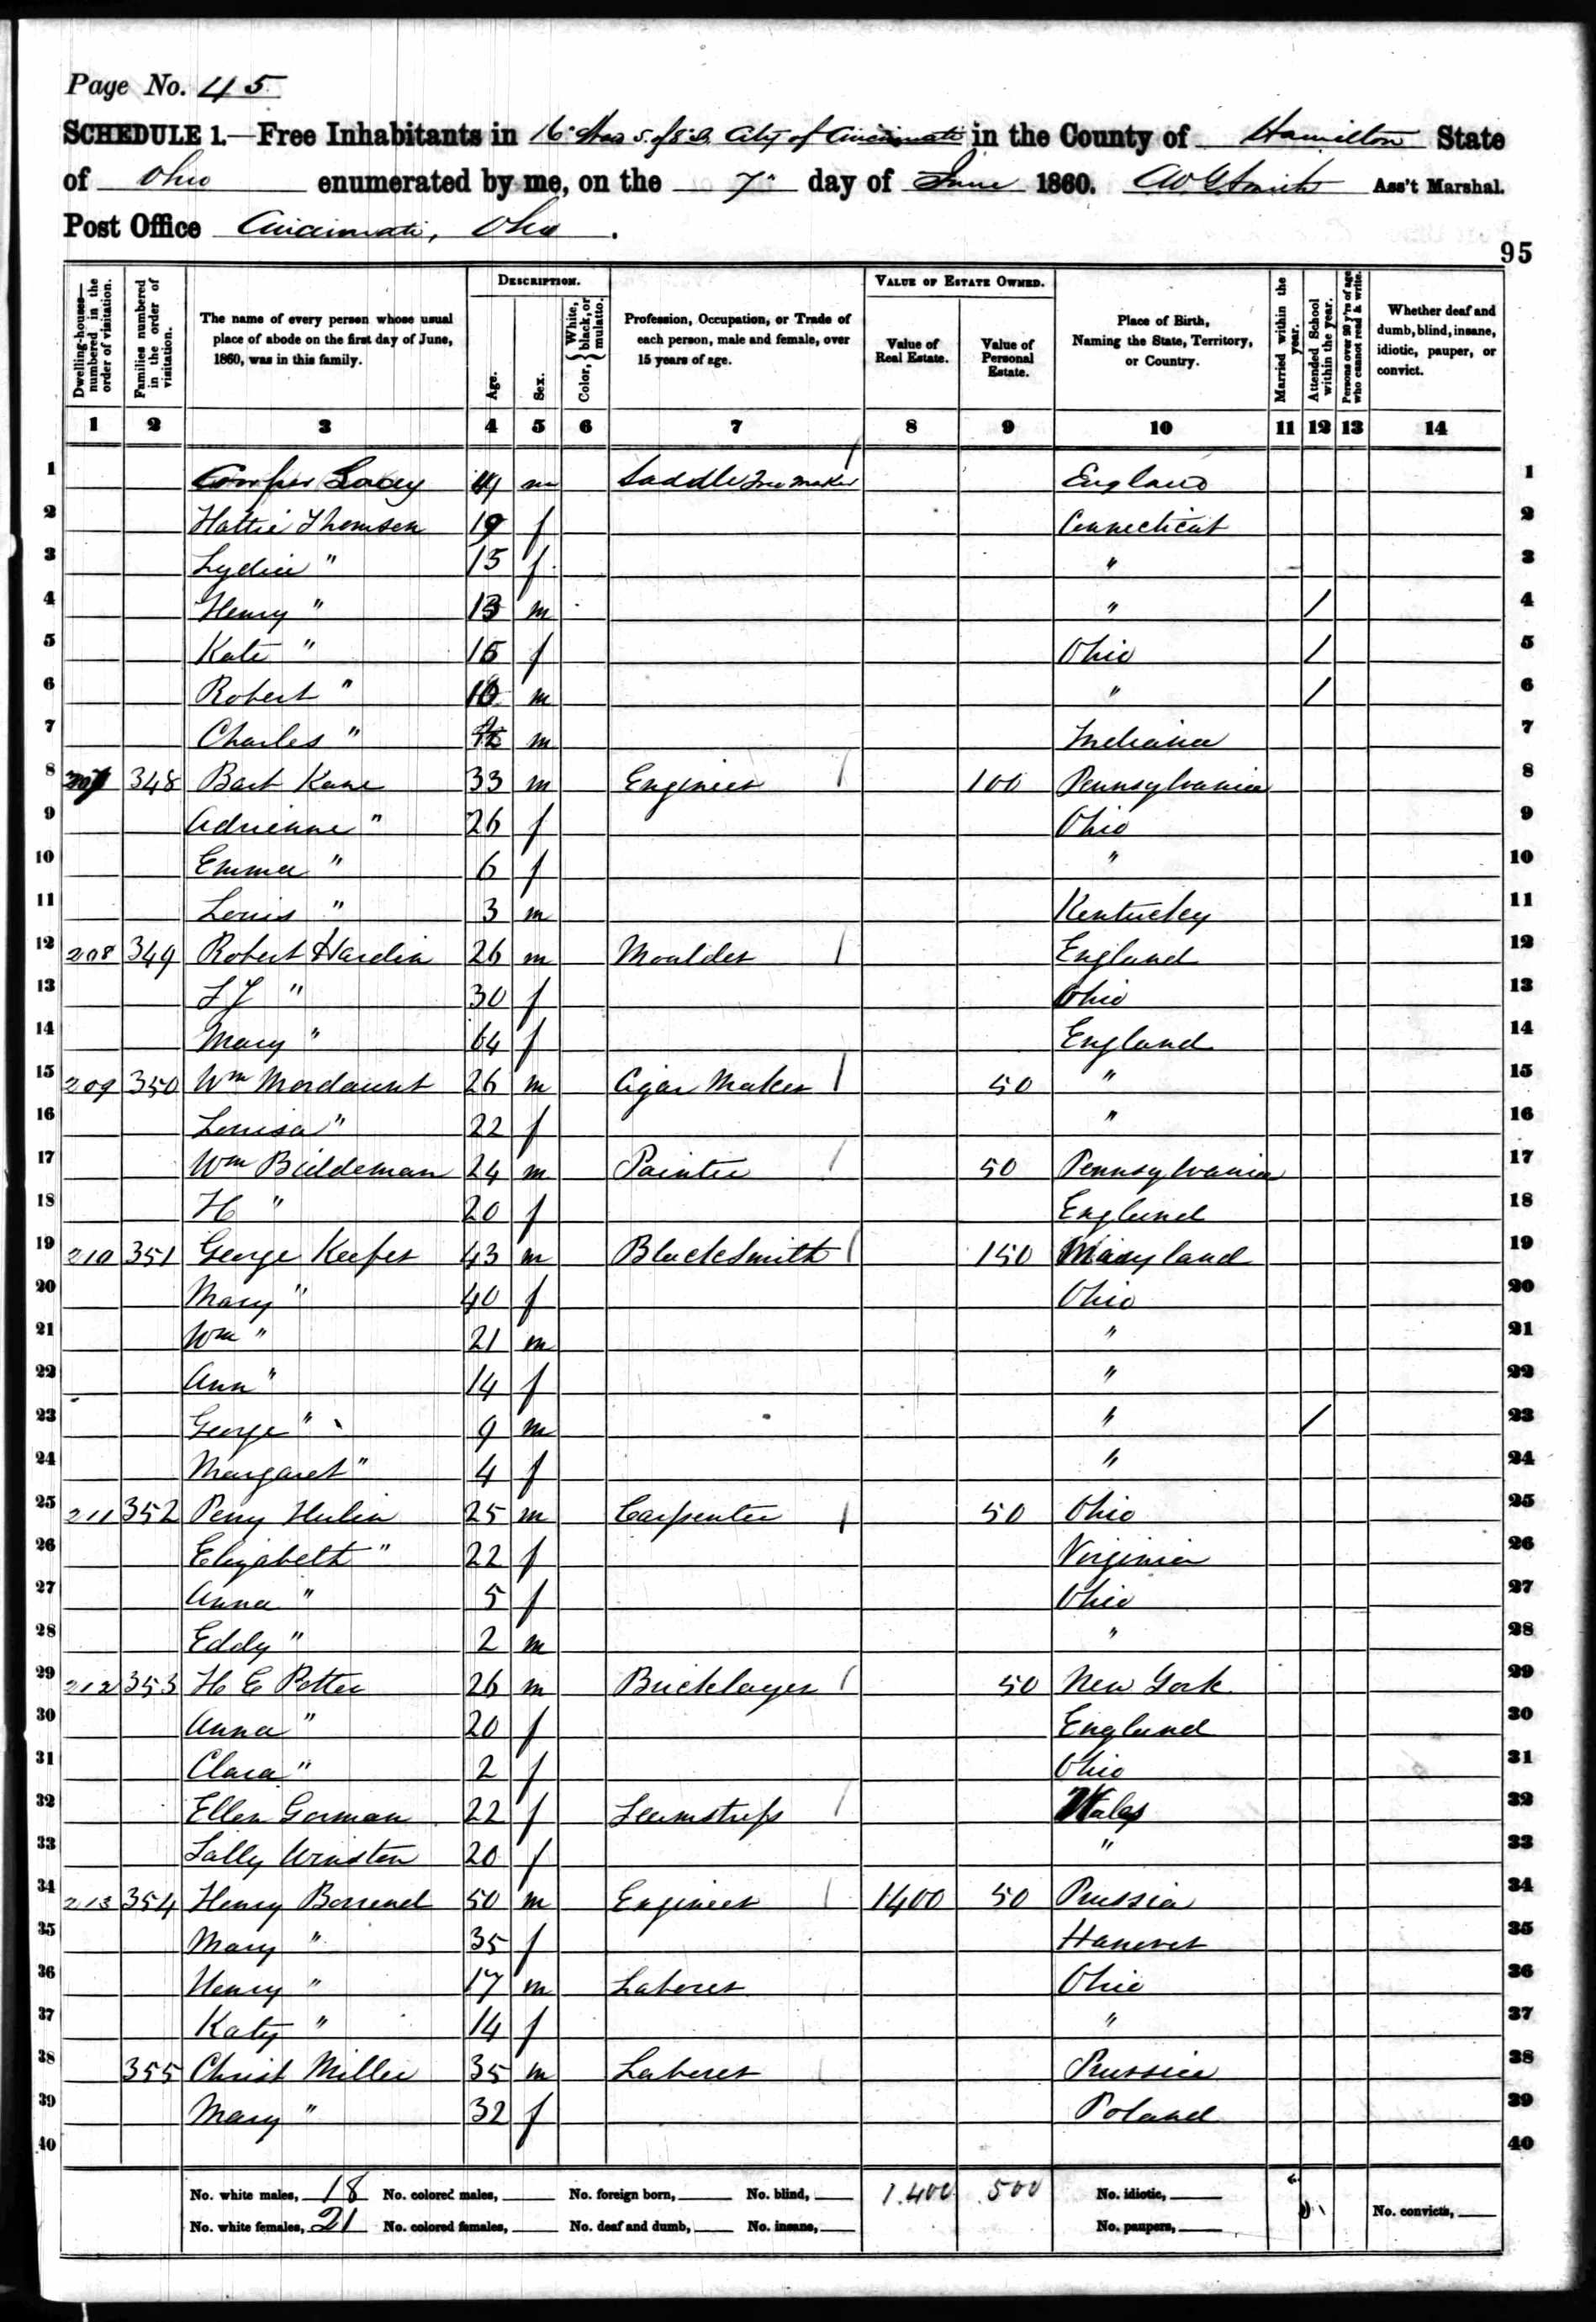 Page No. 45
SCHEDULE 1.—Free Inhabitants in 16th City of Cincinnati in the County of Hamilton State
of Ohio enumerated by me, on the 7th day of June 1860. Ass't Marshal.
Post Office Cincinnati, Ohio.
95
Dwelling-houses—numbered in the order of visitation.
Families numbered in the order of visitation.
The name of every person whose usual place of abode on the first day of June, 1860, was in this family.
DESCRIPTION.
Age.
Sex.
Color, { White, black, or mulatto.
Profession, Occupation, or Trade of each person, male and female, over 15 years of age.
VALUE OF ESTATE OWNED.
Value of Real Estate.
Value of Personal Estate.
Place of Birth, Naming the State, Territory, or Country.
Married within the year.
Attended School within the year.
Persons over 20 y'rs of age who cannot read & write.
Whether deaf and dumb, blind, insane, idiotic, pauper, or convict.
1 2 3 4 5 6 7 8 9 10 11 12 13 14
1 Lacey m Saddle Tree Maker England 1
2 Hattie Thomson 19 f Connecticut 2
3 Lydia " 15 f " 3
4 Henry " 13 m " / 4
5 Kate " f Ohio / 5
6 Robert " 10 m " / 6
7 Charles " m Indiana 7
8 207 348 Bart Kane 33 m Engineer / 100 Pennsylvania 8
9 Adrienne " 26 f Ohio 9
10 Emma " 6 f " 10
11 Louis " 3 m Kentucky 11
12 208 349 Robert Hardin 26 m Moulder / England 12
13 " 30 f Ohio 13
14 Mary " 64 f England 14
15 209 350 Wm Mordaunt 26 m Cigar Maker / 50 " 15
16 Louisa " 22 f " 16
17 Wm Buildeman 24 m Painter / 50 Pennsylvania 17
18 H " 20 f England 18
19 210 351 George Keefer 43 m BlackSmith / 150 Maryland 19
20 Mary " 40 f Ohio 20
21 Wm " 21 m " 21
22 Ann " 14 f " 22
23 George " 9 m " / 23
24 Margaret " 4 f " 24
25 211 352 Perry Hulin 25 m Carpenter / 50 Ohio 25
26 Elizabeth " 22 f Virginia 26
27 Anna " 5 f Ohio 27
28 Eddy " 2 m " 28
29 212 353 H E Potter 26 m Bricklayer / 50 New York 29
30 Anna " 20 f England 30
31 Clara " 2 f Ohio 31
32 Ellen Gorman 22 f Seamstress / Wales 32
33 Sally Winston 20 f " 33
34 213 354 Henry Borrend 50 m Engineer / 1400 50 Prussia 34
35 Mary " 35 f Hanover 35
36 Henry " 17 m Laborer Ohio 36
37 Katy " 14 f " 37
38 355 Christ Miller 35 m Laborer Prussia 38
39 Mary " 32 f Poland 39
40 40
No. white males, 18 No. colored males, No. foreign born, No. blind, 1.400 500 No. idiotic,
No. white females, 21 No. colored females, No. deaf and dumb, No. insane, No. paupers, No. convicts,